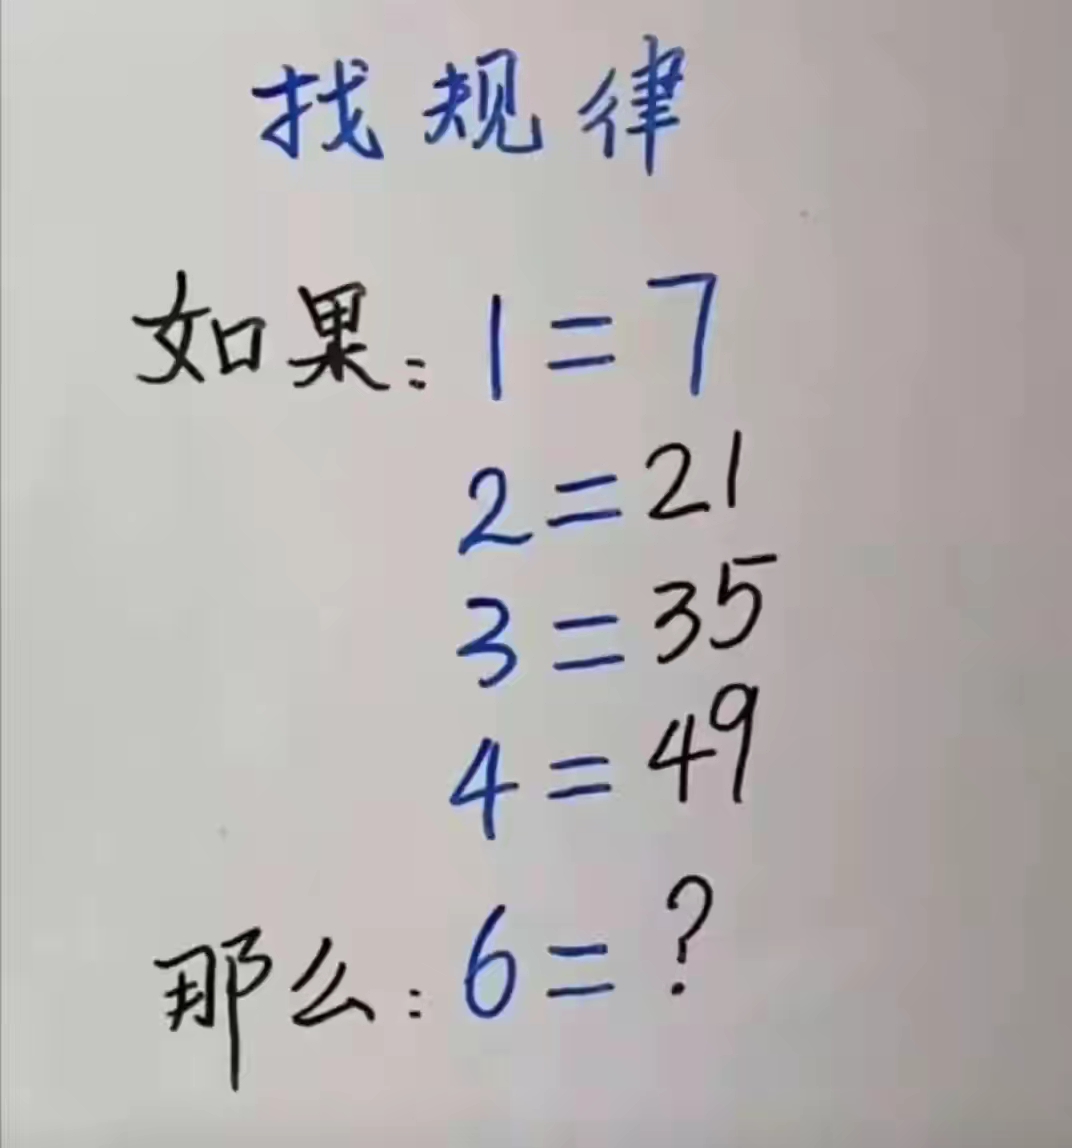 找规律
如果：1=7
2=21
3=35
4=49
那么：6=?